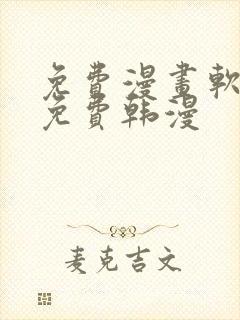 免費漫畫軟
免費韩漫
麦克吉文